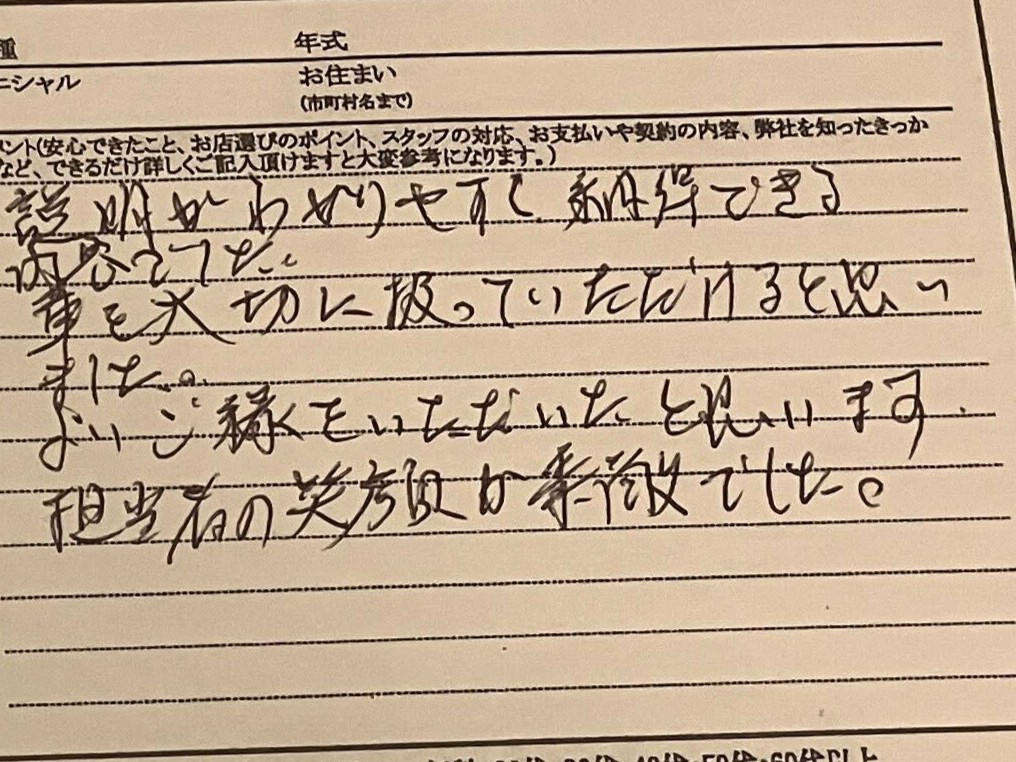 種 年式
ニシャル お住まい
(市町村名まで)
メント(安心できたこと、お店選びのポイント、スタッフの対応、お支払いや契約の内容、弊社を知ったきっか
など、できるだけ詳しくご記入頂けますと大変参考になります。)
説明がわかりやすく納得できる
内容でした。
車を大切に扱っていただけると思い
ました。
よいご縁をいただいたと思います
担当者の笑顔が素敵でした。